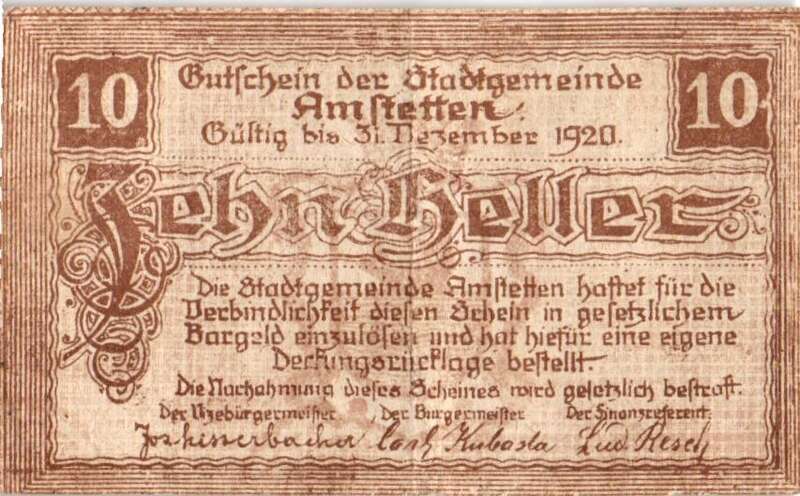 10 Gutschein der Stadtgemeinde 10
Amstetten.
Gültig bis 31. Dezember 1920.
Zehn Heller
Die Stadtgemeinde Amstetten haftet für die
Verbindlichkeit diesen Schein in gesetzlichem
Bargeld einzulösen und hat hiefür eine eigene
Deckungsrücklage bestellt.
Die Nachahmung dieses Scheines wird gesetzlich bestraft.
Der Vizebürgermeister Der Bürgermeister Der Finanzreferent.
Carl Kubasta Lud Resch